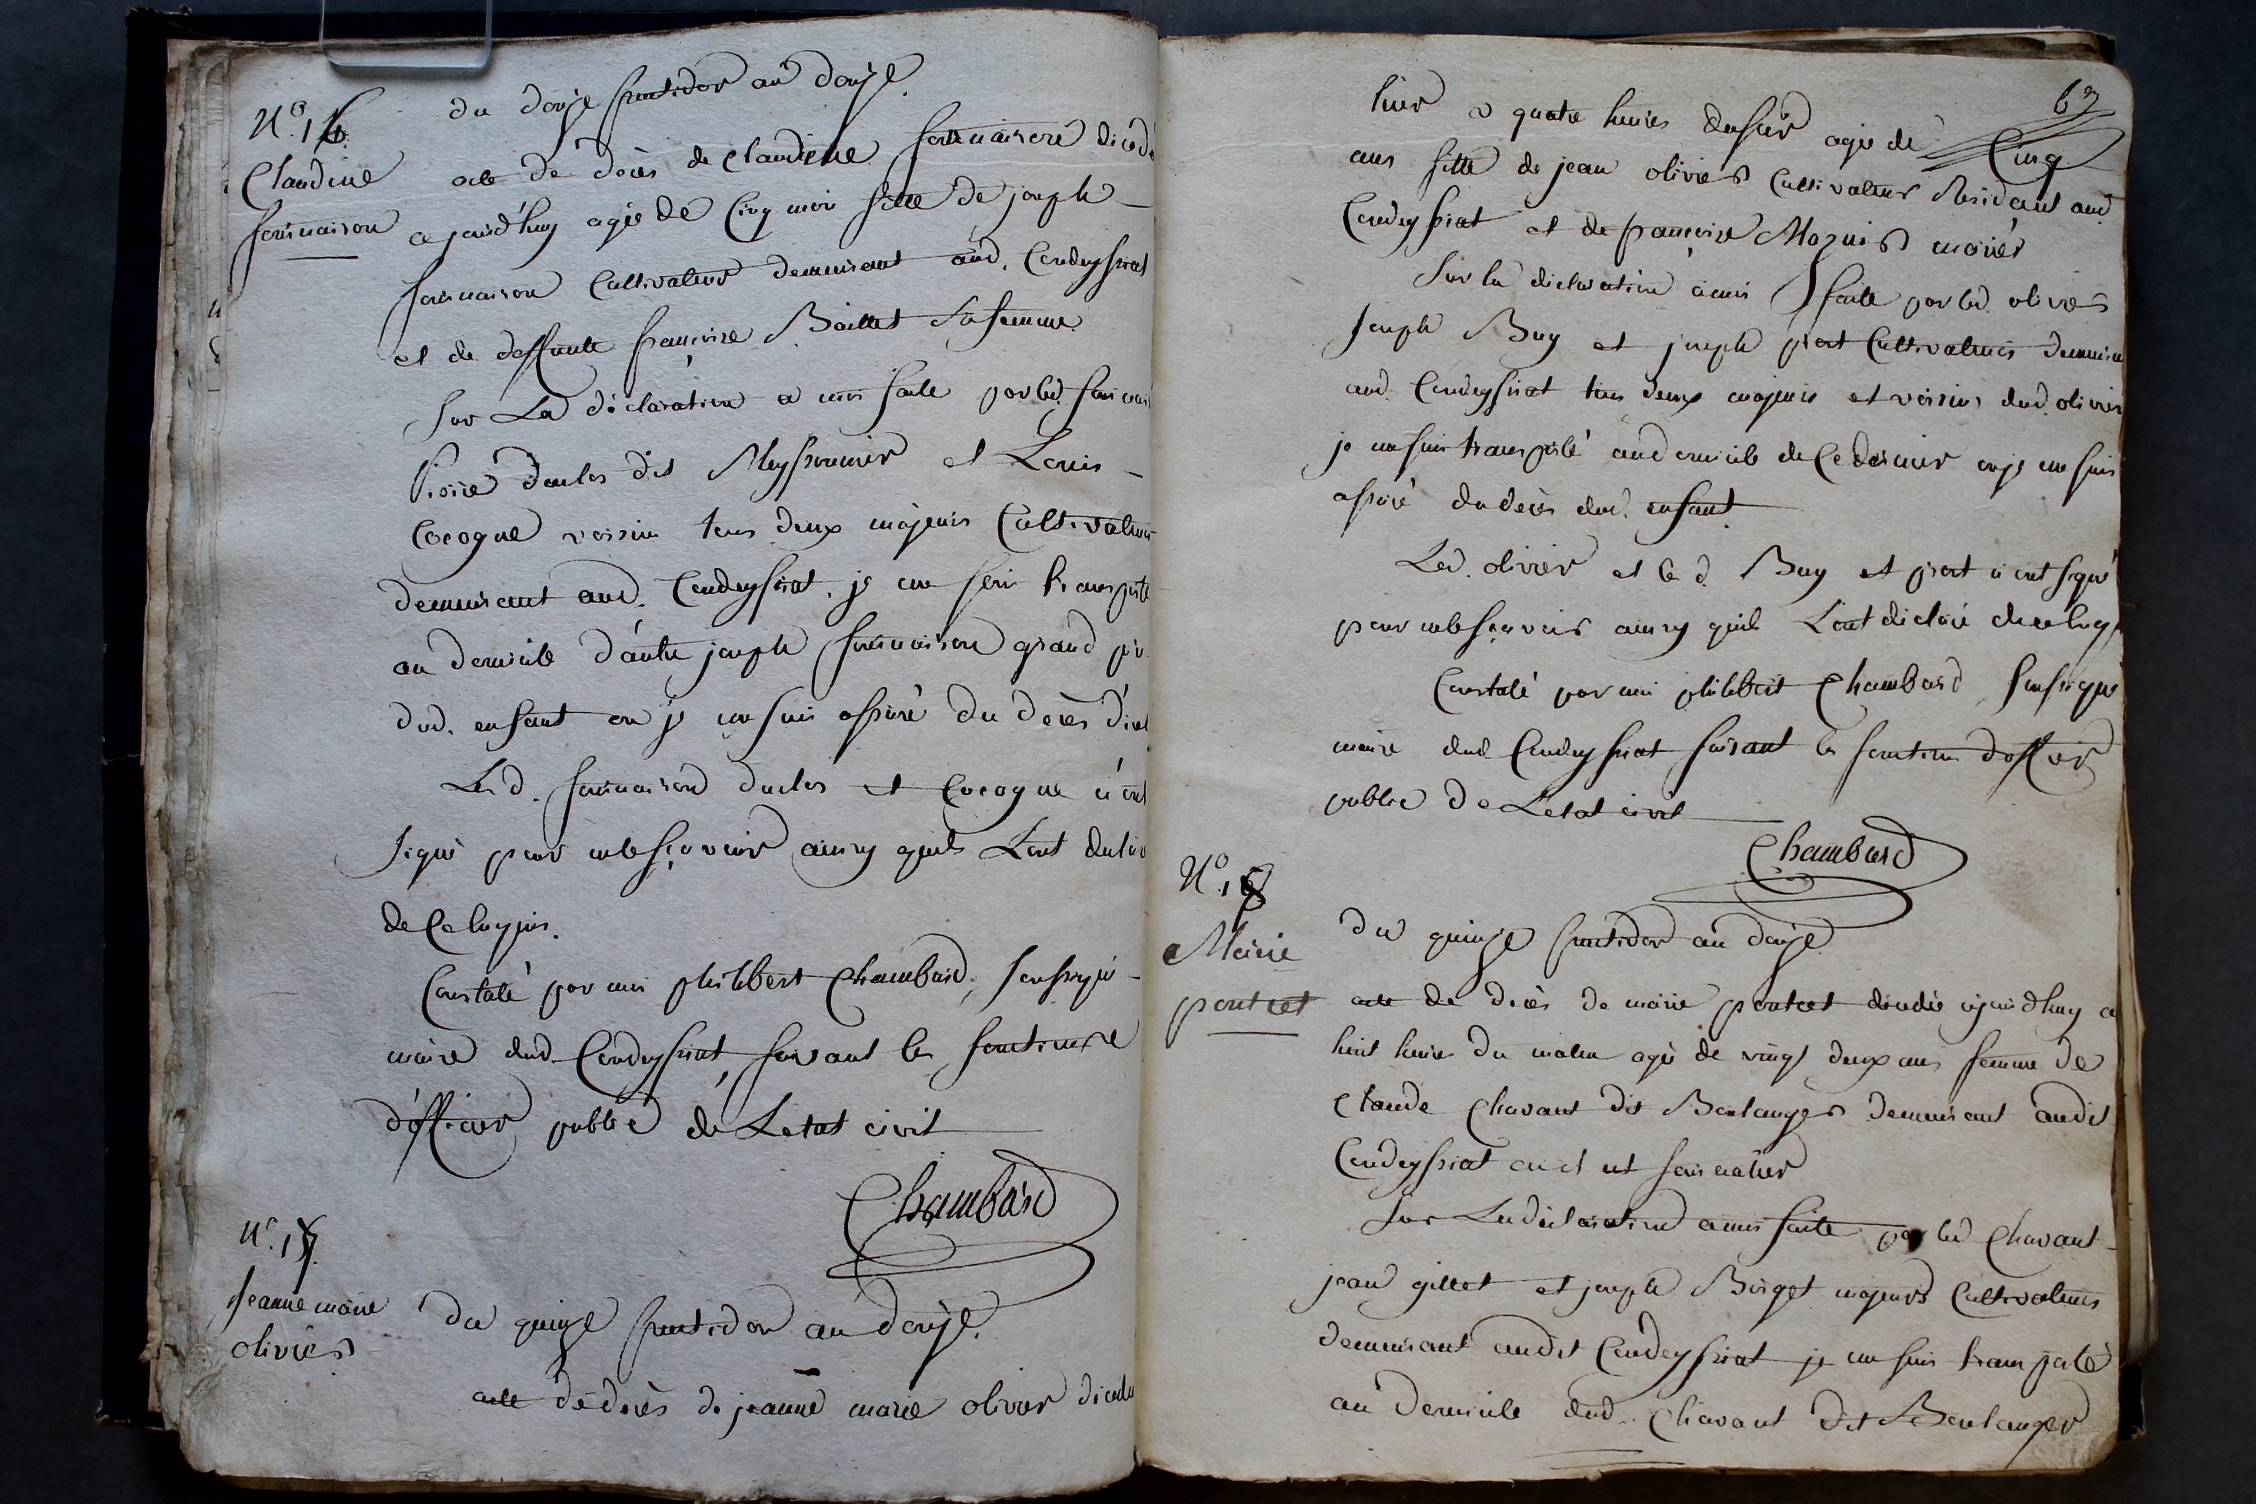 N.º 16.
Claudine
fornaison
du douze fructidor an douze.
acte de décès de Claudine fornaison decedé
ajourd'huy agée de Cinq mois fille de joseph
fornaison Cultivateur demeurant aud. Condeyssiat
et de deffunte françoise Baillet sa femme
sur La déclaration a moi faite par led. fornaison
Pierre duclos dit Meyssonnier et Louis
Cocogne voisin tous deux majeurs Cultivateurs
demeurant aud. Condeyssiat. je me suis transporté
au domicile d'autre joseph fornaison grand per
dud. enfant ou je me suis assuré du décès d'icel
Led. fornaison duclos et Cocogne n'ont
signé pour ne le sçavoir ainsy quils Lont declaré
de Ce Enquis.
Constaté par moi philibert Chambard, soussigné
maire dud. Condeyssiat, faisant les fonctions
d'officier public de Letat civil
Chambard
N.º 17.
Jeanne marie
olivier
du quinze fructidor an douze.
acte de décès de jeanne marie olivier décédé
67
hier a quatre heures du soir agée de Cinq
ans fille de jean olivier Cultivateur Residant aud.
Condeyssiat et de françoise mariés
Sur la déclaration à moi faite par led. olivier
Joseph Buy et joseph piert Cultivateurs demeurant
aud. Condeyssiat tous deux majeurs et voisins dud. olivier
je me suis transporté au domicile de Ce dernier ou je me suis
assuré du décès dud. enfant.
Led. olivier et le d. Buy et piert n'ont signé
pour ne le sçavoir ainsy quils Lont déclaré de ce Enquis
Constaté par moi philibert Chambard soussigné
maire dud. Condeyssiat faisant les fonctions d'officier
public de L'etat civil
Chambard
N.º 18
Marie
pontcet
du quinze fructidor an douze.
acte de décès de marie pontcet décédée ajourd'huy a
huit heures du matin agée de vingt deux ans femme de
Claude Chavant dit Boulanger demeurant audit
Condeyssiat
Sur La déclaration a moi faite par led. Chavant
jean gillet et joseph Birget majeurs Cultivateurs
demeurant audit Condeyssiat je me suis transporté
au domicile dud. Chavant dit Boulanger